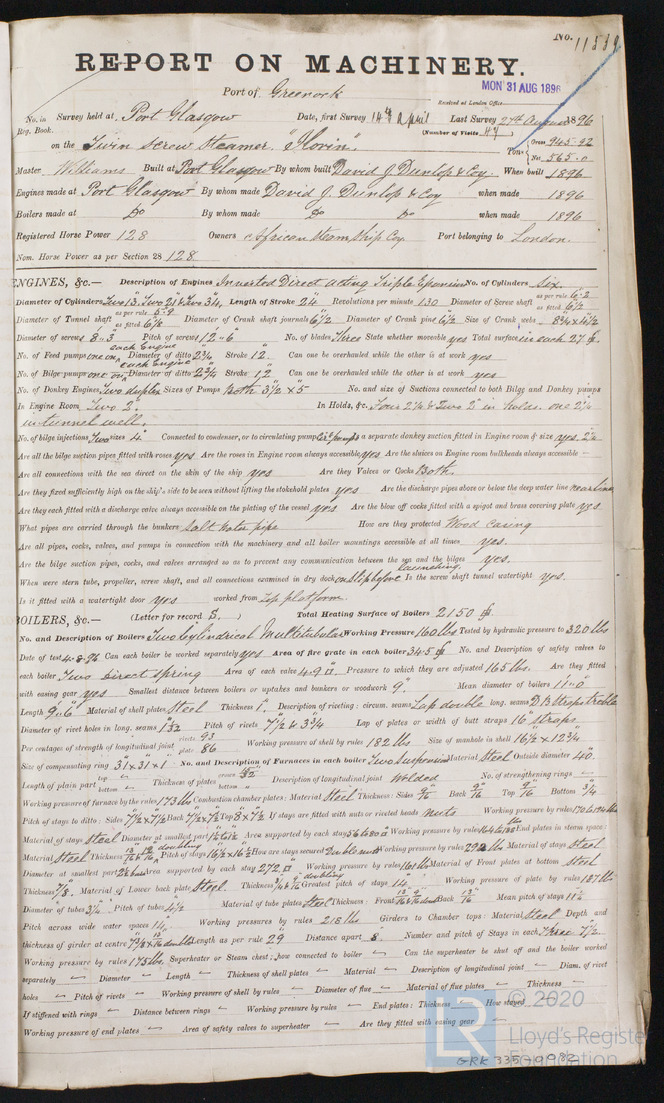 No. 11539
REPORT ON MACHINERY.
Port of Greenock
MON 31 AUG 1896
Received at London Office
No. in Survey held at Port Glasgow Date, first Survey 14th April Last Survey 27th August 1896
Reg. Book. (Number of Visits 47)
on the Twin Screw Steamer "Ilorin" Tons Gross 945.92
Net 565.0
Master Williams Built at Port Glasgow By whom built David J. Dunlop & Coy. When built 1896
Engines made at Port Glasgow By whom made David J. Dunlop & Coy when made 1896
Boilers made at Do By whom made Do Do when made 1896
Registered Horse Power 128 Owners African Steam Ship Coy Port belonging to London.
Nom. Horse Power as per Section 28 128
ENGINES, &c.— Description of Engines Inverted Direct acting Triple Expansion No. of Cylinders Six.
Diameter of Cylinders Two 13" Two 21" & Two 34" Length of Stroke 24 Revolutions per minute 130 Diameter of Screw shaft as per rule 6.2 as fitted 6 1/2
Diameter of Tunnel shaft as per rule 5.9 as fitted 6 1/8 Diameter of Crank shaft journals 6 1/2 Diameter of Crank pins 6 1/2 Size of Crank webs 8 3/4 x 4 1/2
Diameter of screws 8.3 Pitch of screws 12.6 No. of blades Three State whether moveable yes Total surface in each 27 ft.
No. of Feed pumps one on each Engine Diameter of ditto 2 3/4 Stroke 12 Can one be overhauled while the other is at work yes
No. of Bilge pumps one on each Engine Diameter of ditto 2 3/4 Stroke 12 Can one be overhauled while the other is at work yes
No. of Donkey Engines Two duplex Sizes of Pumps Both 3 1/2 x 5 No. and size of Suctions connected to both Bilge and Donkey pumps
In Engine Room Two 2" In Holds, &c. Four 2 1/4 & Two 2" in holds. one 2 1/4
in tunnel well.
No. of bilge injections Two sizes 4" Connected to condenser, or to circulating pump Is a separate donkey suction fitted in Engine room & size yes. 2 1/4
Are all the bilge suction pipes fitted with roses yes Are the roses in Engine room always accessible yes Are the sluices on Engine room bulkheads always accessible —
Are all connections with the sea direct on the skin of the ship yes Are they Valves or Cocks Both.
Are they fixed sufficiently high on the ship's side to be seen without lifting the stokehold plates yes Are the discharge pipes above or below the deep water line near line
Are they each fitted with a discharge valve always accessible on the plating of the vessel yes Are the blow off cocks fitted with a spigot and brass covering plate yes
What pipes are carried through the bunkers Salt water pipe How are they protected Wood casing
Are all pipes, cocks, valves, and pumps in connection with the machinery and all boiler mountings accessible at all times yes.
Are the bilge suction pipes, cocks, and valves arranged so as to prevent any communication between the sea and the bilges yes.
When were stern tube, propeller, screw shaft, and all connections examined in dry dock on slip before launching Is the screw shaft tunnel watertight yes.
Is it fitted with a watertight door yes worked from Top platform.
BOILERS, &c.— (Letter for record S.) Total Heating Surface of Boilers 2150 ft
No. and Description of Boilers Two Cylindrical Multitubular Working Pressure 160 lbs Tested by hydraulic pressure to 320 lbs
Date of test 4.8.96 Can each boiler be worked separately yes Area of fire grate in each boiler 34.5 No. and Description of safety valves to
each boiler Two Direct Spring Area of each valve 4.9 Pressure to which they are adjusted 165 lbs. Are they fitted
with easing gear yes Smallest distance between boilers or uptakes and bunkers or woodwork 9" Mean diameter of boilers 11'.0"
Length 9'.6" Material of shell plates Steel Thickness 1" Description of riveting: circum. seams Lap double long. seams D.B. Straps treble
Diameter of rivet holes in long. seams 1 1/32 Pitch of rivets 7 1/2 & 3 3/4 Lap of plates or width of butt straps 16" straps.
Per centages of strength of longitudinal joint rivets 93 plate 86 Working pressure of shell by rules 182 lbs Size of manhole in shell 16 1/2 x 12 3/4
Size of compensating ring 31 x 31 x 1 No. and Description of Furnaces in each boiler Two Suspension Material Steel Outside diameter 40"
Length of plain part top bottom Thickness of plates crown bottom Description of longitudinal joint Welded No. of strengthening rings —
Working pressure of furnace by the rules 173 lbs Combustion chamber plates: Material Steel Thickness: Sides 9/16 Back 9/16 Top 9/16 Bottom 3/4
Pitch of stays to ditto: Sides 7 1/2 x 7 1/2 Back 7 1/2 x 7 1/2 Top 8 x 7 1/2 If stays are fitted with nuts or riveted heads nuts Working pressure by rules
Material of stays Steel Diameter at smallest part Area supported by each stay Working pressure by rules End plates in steam space:
Material Steel Thickness doubling Pitch of stays 16 1/2 x 16 1/2 How are stays secured Double nuts Working pressure by rules Material of stays Steel
Diameter at smallest part Area supported by each stay 272 Working pressure by rules Material of Front plates at bottom Steel
Thickness 7/8 Material of Lower back plate Steel Thickness doubling Greatest pitch of stays 14" Working pressure of plate by rules 187 lbs
Diameter of tubes 3 1/4 Pitch of tubes 4 1/2 Material of tube plates Steel Thickness: Front Back 13/16 Mean pitch of stays 11 1/4
Pitch across wide water spaces 14 Working pressures by rules 218 lbs Girders to Chamber tops: Material Steel Depth and
thickness of girder at centre double Length as per rule 29 Distance apart 8 Number and pitch of Stays in each Three 7 1/2
Working pressure by rules 175 lbs. Superheater or Steam chest; how connected to boiler — Can the superheater be shut off and the boiler worked
separately — Diameter — Length — Thickness of shell plates — Material — Description of longitudinal joint — Diam. of rivet
holes — Pitch of rivets — Working pressure of shell by rules — Diameter of flue — Material of flue plates — Thickness —
If stiffened with rings — Distance between rings — Working pressure by rules — End plates: Thickness How stayed
Working pressure of end plates — Area of safety valves to superheater — Are they fitted with easing gear —
LR © 2020
Lloyd's Register
Foundation
GRK 335-0082